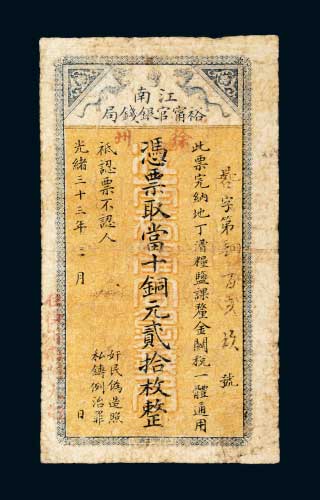 江南
裕甯官銀錢局
徐州
字第 號
此票完納地丁漕糧鹽課釐金關稅一體通用
憑票取當十銅元貳拾枚整
祗認票不認人
光緒三十三年 月 日
奸民偽造照
私鑄例治罪